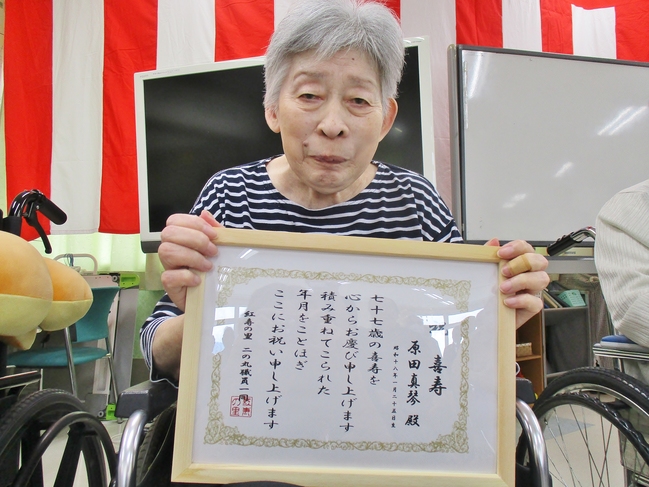 喜寿
原田真琴 殿
昭和十八年一月二十五日生
七十七歳の喜寿を
心からお慶び申し上げます
積み重ねてこられた
年月をことほぎ
ここにお祝い申し上げます
紅寿の里 二の丸職員一同
紅寿の里